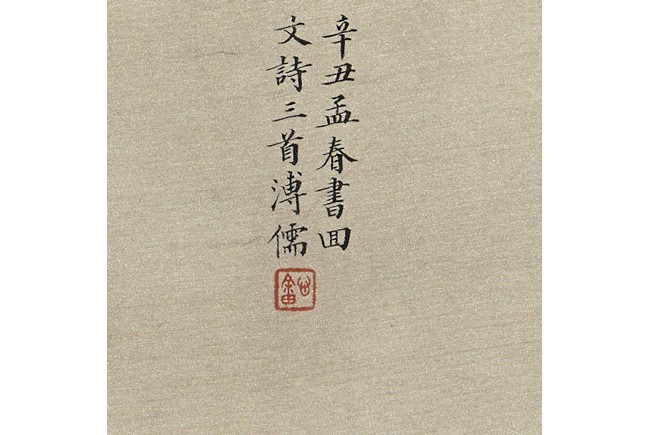 辛丑孟春書囬
文詩三首溥儒